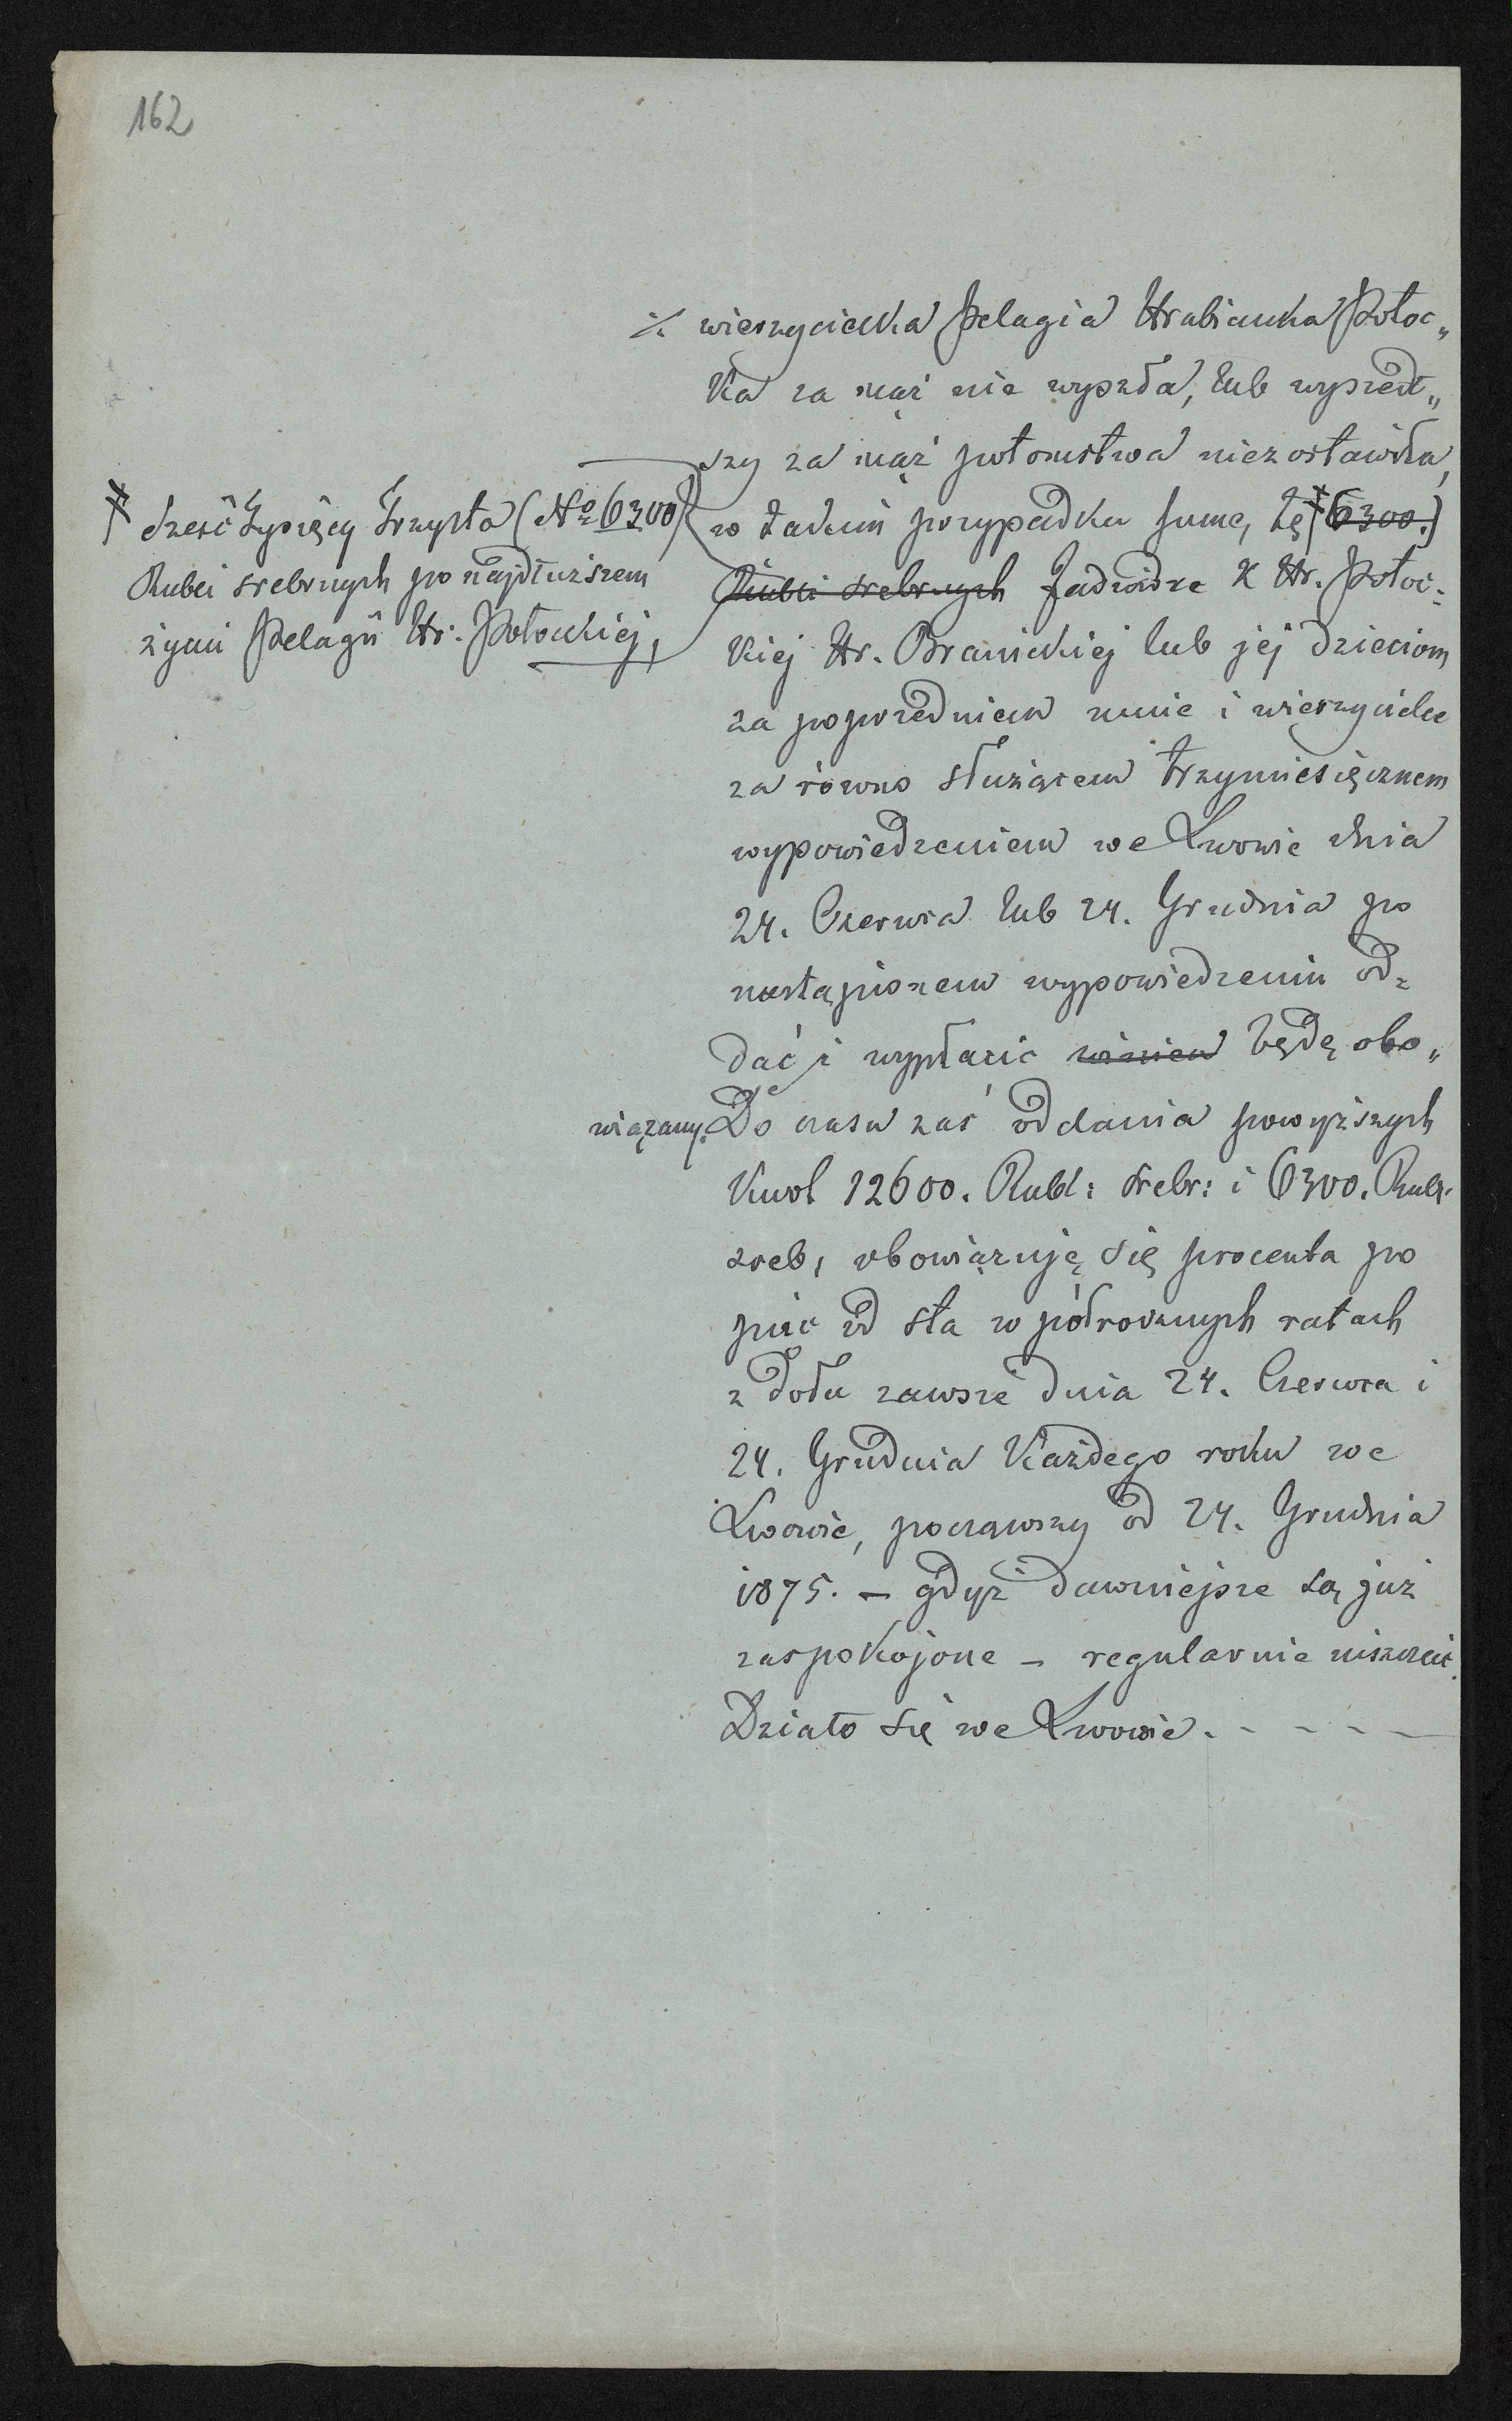 162
% wierzycielka Pelagia Hrabianka Potoc„
ka za mąż nie wyszła, lub wyszedł„
szy za mąż potomstwa niezostawiła,
w takim przypadku sumę tę (6300.)
Rubli srebrnych Jadwidze z Hr. Potoc:
kiej Hr. Branickiej lub jej dzieciom
za poprzedniem mnie i wierzycielce
za równo służącem trzymiesięcznem
wypowiedzeniem we Lwowie dnia
24. Czerwca lub 24. Grudnia po
nastąpionem wypowiedzeniu od:
dać i wypłacić winien będę obo„
wiązany. Do czasu zaś oddania powyższych
Kwot 12600. Rubl: srebr: i 6300. Rubl.
sreb, obowiązuję się procenta po
pięć od sta w półrocznych ratach
z dołu zawsze dnia 24. Czerwca i
24. Grudnia Każdego roku we
Lwowie, począwszy od 24. Grudnia
1875. – gdyż dawniejsze są już
zaspokojone – regularnie uiszczać.
Działo się we Lwowie. - - - -
sześć Tysięcy Trzysta (No 6300)
Rubli srebrnych po najdłuższem
życiu Pelagii Hr. Potockiej,